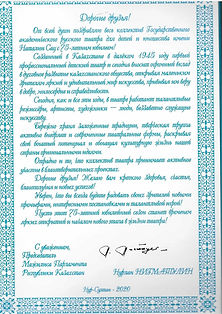 Дорогие друзья!
От всей души поздравляю весь коллектив Государственного
академического русского театра для детей и юношества имени
Наталии Сац с 75-летним юбилеем!
Созданный в Казахстане в далёком 1945 году первый
профессиональный детский театр внёс огромный вклад
в духовное развитие казахстанского общества, открывая маленьким
зрителям яркий и удивительный мир искусства, прививая им веру
в добро, милосердие и справедливость.
Сегодня, как и все эти годы, в театре работают талантливые
режиссёры, артисты, художники — люди, беззаветно служащие
искусству.
Бережно храня заложенные традиции, современный театр
активно в современных театральных формах, раскрывая
свой богатый потенциал и обогащая культурную жизнь нашей
страны
Отрадно и то, что коллектив театра принимает активное
участие в благотворительных проектах.
Дорогие друзья! Желаю вам крепкого здоровья, счастья,
благополучия и новых успехов!
Уверен, что вы всегда будете радовать своих зрителей новыми
премьерами, интересными постановками и талантливой игрой!
Пусть этот 75-летний юбилейный сезон станет временем
ярких открытий и началом новых в жизни театра!
С уважением,
Председатель
Мажилиса Парламента
Республики Казахстан
Нурлан НИГМАТУЛИН
Нур-Султан - 2020